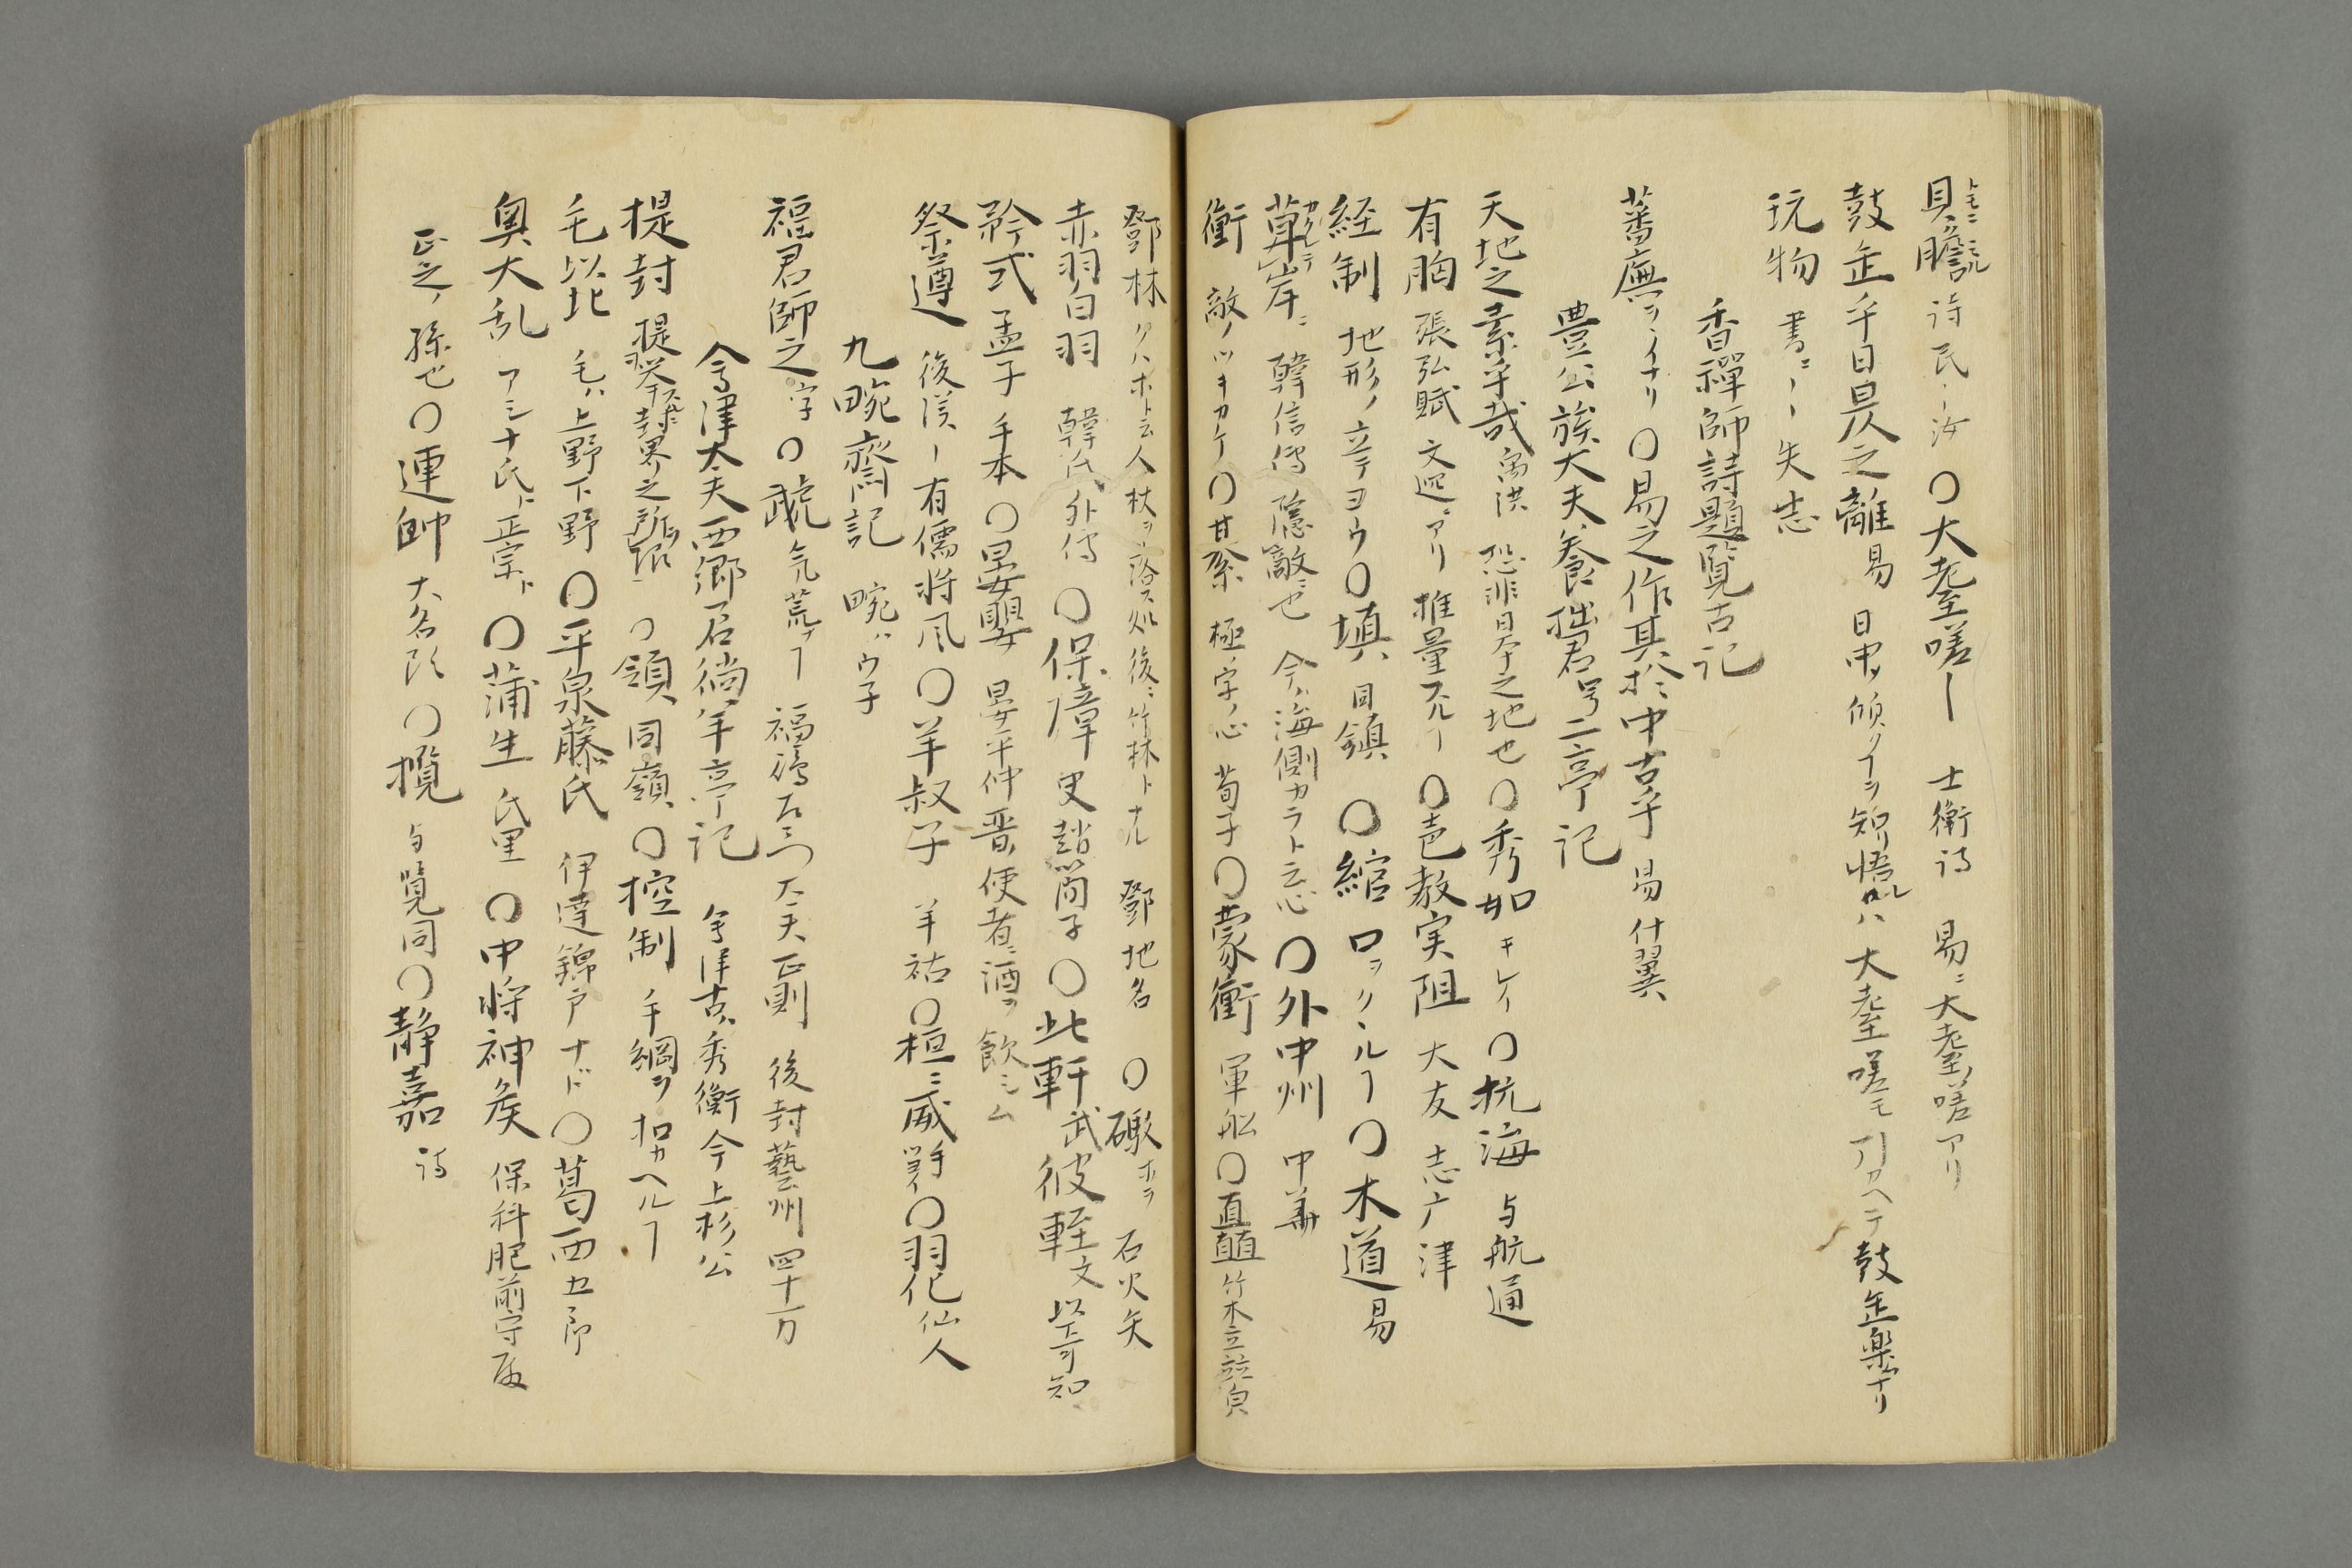 具瞻 詩 民ー汝 〇大耋嗟ー 士衡詩 易ニ大耋嗟アリ
鼓缶乎日昃之離 易 日中ノ傾クヿヲ知リ悟 ハ大耋嗟モ引カヘテ鼓缶楽ナリ
玩物 書ニーー失志
香禪師詩題覧古記
蕃廡 〇易之作其於中古乎 易 什翼
豊公族大夫養拙君号二亭記
天地之素乎哉 恐非日本之地也 〇秀如 キレイ 〇杭海 与航通
有胸 張弘賦 文選ニアリ 推量スルヿ 〇邑教実阻 大友 志广津
経制 地形ノ立テヨウ 〇填 同鎮 〇綰 口ヲククルヿ 〇木道 易
草岸ニ 韓信傳 隠敵ニ也 今ハ海側カラト云心 〇外中州 中華
衝 敵ノツキカケ 〇甘棗 極ノ字ノ心 荀子 〇蒙衝 軍舩 〇直矗 竹木立並皃
鄧林 クハホト云人杖ヲ落ス処後ニ竹林トナル 鄧地名 〇礮 ホヲ 石火矢
赤羽白羽 韓氏外傳 〇保障 史 趙簡子 〇此軒 武 彼輊 文
矜式 孟子 手本 〇晏嬰 晏平仲晋ノ使者ニ酒ヲ飲シム
祭遵 後漢ー有儒将風 〇羊叔子 羊祜 〇桓ニ威 〇羽化 仙人
九畹齋記 畹ハウ子
福君師之 字 〇虣 気荒ナヿ 福嶋左ヱ门大夫正則 後封藝州四十一万
會津大夫西郷君徜徉亭記 會津古ハ秀衡今上杉公
提封 封界之所 〇領 同嶺 〇控制 手綱ヲ扣カヘルヿ
毛以北 毛ハ上野下野 〇平泉藤氏 伊達錦戸ナド 〇葛西 五郎
奥大乱 アシナ氏ト正宗ト 〇蒲生 氏里 〇中将神矦 保科肥前守殿
正之ノ孫也 〇連帥 大名 〇攬 与覧同 〇靜嘉 詩